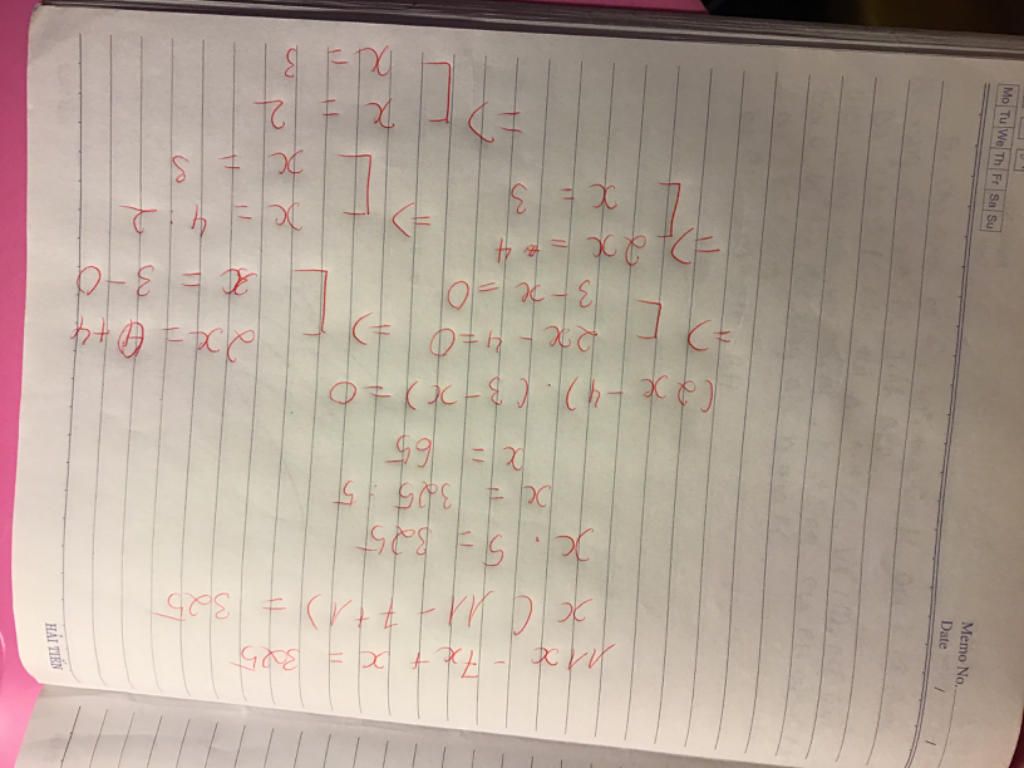 Memo No.
Date / /
Mo Tu We Th Fr Sa Su
11x - 7x + x = 325
x ( 11 - 7 + 1) = 325
x . 5 = 325
x = 325 : 5
x = 65
(2x - 4) . (3 - x) = 0
=> [ 2x - 4 = 0 => [ 2x = 0 + 4
3 - x = 0 x = 3 - 0
=> [ 2x = 4 => [ x = 4 : 2
x = 3 x = 3
=> [ x = 2
x = 3
HẢI TIẾN